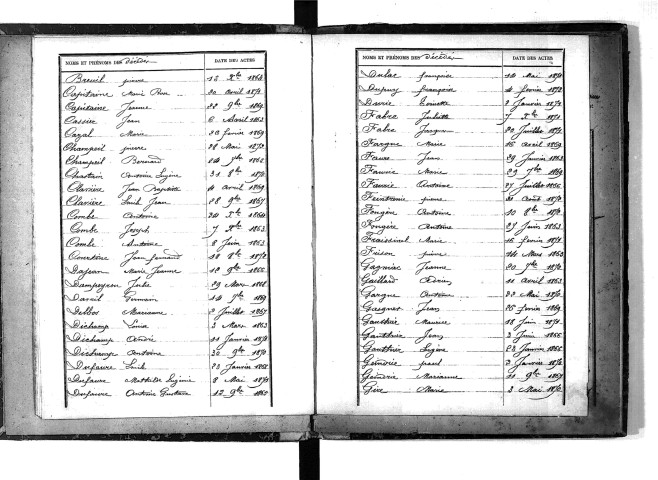 NOMS ET PRÉNOMS DES décédés DATE DES ACTES
Breuil pierre 13 Xbre 1864
Capitaine Marie Rose 20 avril 1871
Capitaine Jeanne 22 9bre 1869
Cassier Jean 6 Avril 1863
Cazal Marie 23 fevrier 1869
Champeil pierre 28 Mai 1872
Champeil Bernard 24 7bre 1862
Chastain Antoine 31 8bre 1871
Clavière Jean Baptiste 4 avril 1869
Clavière Emile Jean 28 9bre 1867
Combe Antoine 24 Xbre 1864
Combe Joseph 7 Xbre 1863
Combe Antoine 8 Juin 1863
Courtine Jean fernand 18 8bre 1872
Dajean Marie Jeanne 18 9bre 1866
Dampeyrou 29 Mars 1868
Germain 14 7bre 1869
Delbos Marianne 2 Juillet 1867
Déchamp 3 Mars 1863
Déchamp André 11 Janvier 1871
Déchamp Antoine 30 9bre 1870
Dufaure Emile 23 Janvier 1862
Dufaure Mathilde 8 Mai 1871
Dufaure Antoine Gustave 12 9bre 1862
NOMS ET PRÉNOMS DES décédés DATE DES ACTES
Dulac françoise 14 Mai 1871
Dupuy françoise 4 fevrier 1872
Durie 2 Janvier 1872
Fabre Juliette 7 Xbre 1871
Fabre Jacques 20 Juillet 1872
Fargue Marie 16 avril 1869
Faure Jean 29 Janvier 1863
Faurie Marie 29 7bre 1869
Faurie Antoine 27 Juillet 1866
pierre 21 Aout 1871
Fougère Antoine 10 8bre 1871
Fougère Antoine 27 Juin 1863
Fraissinel Marie 15 fevrier 1871
Frison pierre 14 Mars 1863
Gagniac Jeanne 20 7bre 1872
Gaillard 11 avril 1863
Gargue Antoine 22 Mai 1871
Gasquet Jean 25 fevrier 1869
Gauthier Maurice 18 Juin 1871
Gauthier Jean 3 Juin 1866
Gauthier Eugène 23 Janvier 1866
paul 2 Janvier 1872
Marianne 21 9bre 1867
Marie 3 Mai 1872